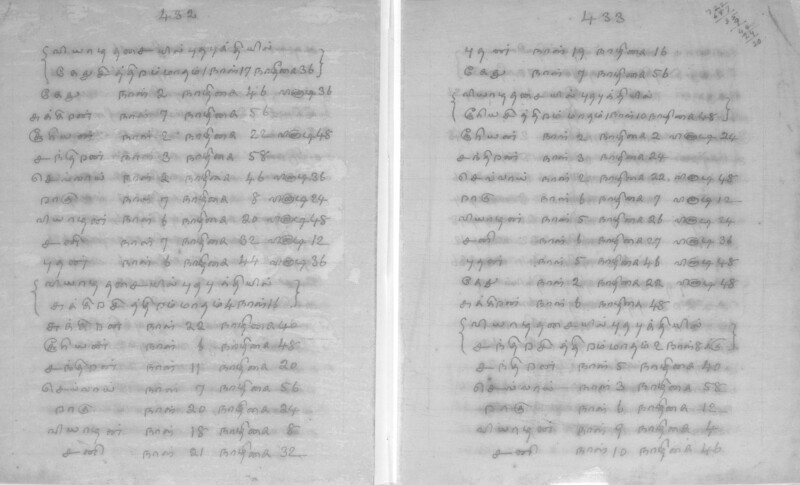 432
{ வியாழதசையில் புதபுத்தியில்
கேது சித்திரம் மாதம் 1 நாள் 17 நாழிகை 36 }
கேது நாள் 2 நாழிகை 46 விநாடி 36
சுக்கிரன் நாள் 7 நாழிகை 56
சூரியன் நாள் 2 நாழிகை 22 விநாடி 48
சந்திரன் நாள் 3 நாழிகை 58
செவ்வாய் நாள் 2 நாழிகை 46 விநாடி 36
ராகு நாள் 7 நாழிகை 8 விநாடி 24
வியாழன் நாள் 6 நாழிகை 20 விநாடி 48
சனி நாள் 7 நாழிகை 32 விநாடி 12
புதன் நாள் 6 நாழிகை 44 விநாடி 36
{ வியாழதசையில் புதபுத்தியில்
சுக்கிர சித்திரம் மாதம் 4 நாள் 16 }
சுக்கிரன் நாள் 22 நாழிகை 40
சூரியன் நாள் 6 நாழிகை 48
சந்திரன் நாள் 11 நாழிகை 20
செவ்வாய் நாள் 7 நாழிகை 56
ராகு நாள் 20 நாழிகை 24
வியாழன் நாள் 18 நாழிகை 8
சனி நாள் 21 நாழிகை 32
433
புதன் நாள் 19 நாழிகை 16
கேது நாள் 7 நாழிகை 56
{ வியாழதசையில் புதபுத்தியில்
சூரிய சித்திரம் மாதம் 1 நாள் 10 நாழிகை 48 }
சூரியன் நாள் 2 நாழிகை 2 விநாடி 24
சந்திரன் நாள் 3 நாழிகை 24
செவ்வாய் நாள் 2 நாழிகை 22 விநாடி 48
ராகு நாள் 6 நாழிகை 7 விநாடி 12
வியாழன் நாள் 5 நாழிகை 26 விநாடி 24
சனி நாள் 6 நாழிகை 27 விநாடி 36
புதன் நாள் 5 நாழிகை 46 விநாடி 48
கேது நாள் 2 நாழிகை 22 விநாடி 48
சுக்கிரன் நாள் 6 நாழிகை 48
{ வியாழதசையில் புதபுத்தியில்
சந்திர சித்திரம் மாதம் 2 நாள் 8 }
சந்திரன் நாள் 5 நாழிகை 40
செவ்வாய் நாள் 3 நாழிகை 58
ராகு நாள் 6 நாழிகை 12
வியாழன் நாள் 9 நாழிகை 4
சனி நாள் 10 நாழிகை 46